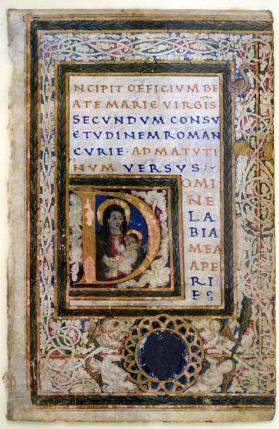 NCIPIT OFFICIUM BE
ATE MARIE VIRGIS
SECUNDUM CONSU
ETUDINEM ROMAN
CURIE · AD MATUTI
NUM VERSUS :
DOMI
NE
LA
BIA
MEA
APE
RI
ES